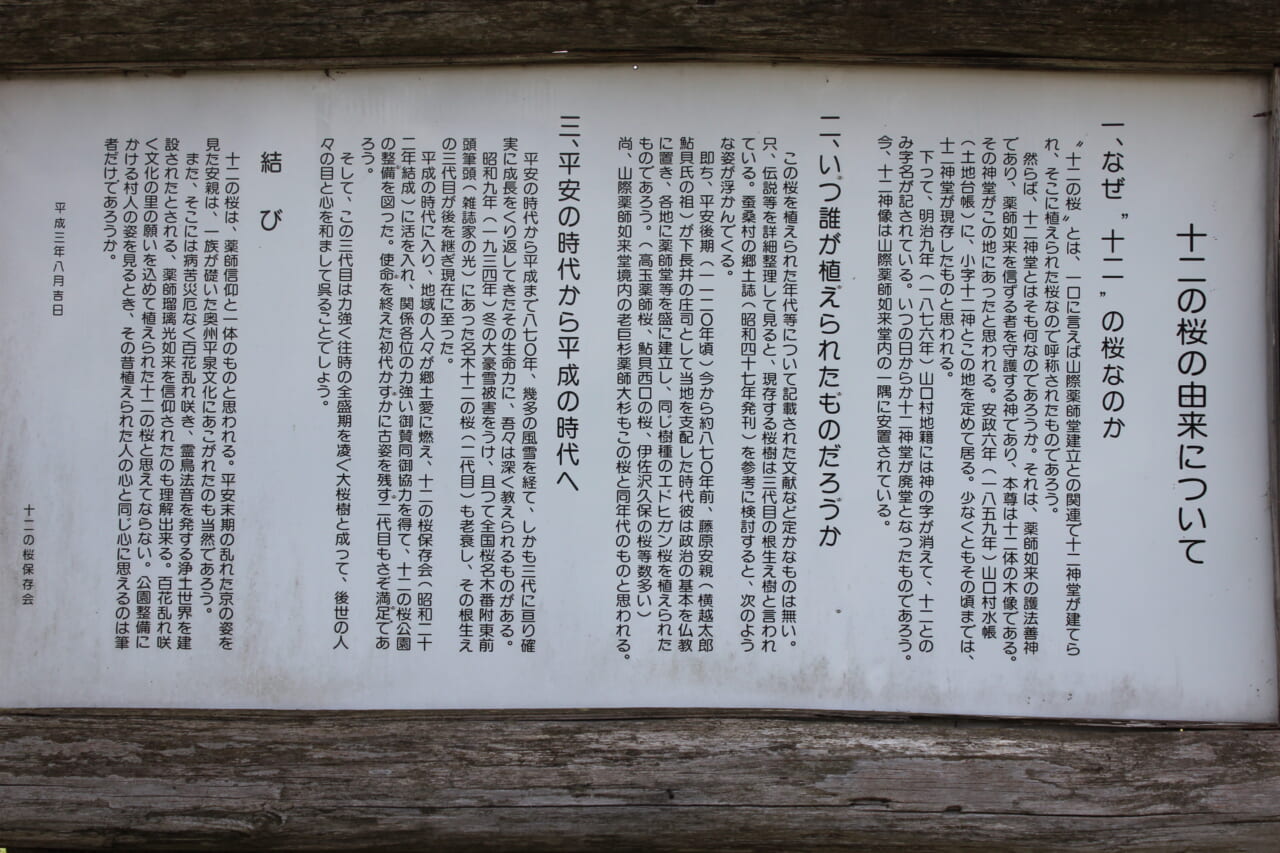 十二の桜の由来について
一、なぜ〝十二〟の桜なのか
〝十二の桜〟とは、一口に言えば山際薬師堂建立との関連で十二神堂が建てら
れ、そこに植えられた桜なので呼称されたものであろう。
然らば、十二神堂とはそも何なのであろうか。それは、薬師如来の護法善神
であり、薬師如来を信ずる者を守護する神であり、本尊は十二体の木像である。
その神堂がこの地にあったと思われる。安政六年(一八五九年)山口村水帳
(土地台帳)に、小字十二神とこの地を定めて居る。少なくともその頃までは、
十二神堂が現存したものと思われる。
下つて、明治九年(一八七六年)山口村地籍には神の字が消えて、十二との
み字名が記されている。いつの日からか十二神堂が廃堂となったものであろう。
今、十二神像は山際薬師如来堂内の一隅に安置されている。
二、いつ誰が植えられたものだろうか
この桜を植えられた年代等について記載された文献など定かなものは無い。
只、伝説等を詳細整理して見ると、現存する桜樹は三代目の根生え樹と言われ
ている。蚕桑村の郷土誌(昭和四十七年発刊)を参考に検討すると、次のよう
な姿が浮かんでくる。
即ち、平安後期(一一二〇年頃)今から約八七〇年前、藤原安親(横越太郎
鮎貝氏の祖)が下長井の庄司として当地を支配した時代彼は政治の基本を仏教
に置き、各地に薬師堂等を盛に建立し、同じ樹種のエドヒガン桜を植えられた
ものであろう。(高玉薬師桜、鮎貝西口の桜、伊佐沢久保の桜等数多い)
尚、山際薬師如来堂境内の老巨杉薬師大杉もこの桜と同年代のものと思われる。
三、平安の時代から平成の時代へ
平安の時代から平成まで八七〇年、幾多の風雪を経て、しかも三代に亘り確
実に成長をくり返してきたその生命力に、吾々は深く教えられるものがある。
昭和九年(一九三四年)冬の大豪雪被害をうけ、且つて全国桜名木番附東前
頭筆頭(雑誌家の光)にあった名木十二の桜(二代目)も老衰し、その根生え
の三代目が後を継ぎ現在に至った。
平成の時代に入り、地域の人々が郷土愛に燃え、十二の桜保存会(昭和二十
二年結成)に活を入れ、関係各位の力強い御賛同御協力を得て、十二の桜公園
の整備を図った。使命を終えた初代かすかに古姿を残す二代目もさぞ満足であ
ろう。
そして、この三代目は力強く往時の全盛期を凌ぐ大桜樹と成って、後世の人
々の目と心を和まして呉ることでしょう。
結び
十二の桜は、薬師信仰と一体のものと思われる。平安末期の乱れた京の姿を
見た安親は、一族が礎いた奥州平泉文化にあこがれたのも当然であろう。
また、そこには病苦災厄なく百花乱れ咲き、霊鳥法音を発する浄土世界を建
設されたとされる、薬師瑠璃光如来を信仰されたのも理解出来る。百花乱れ咲
く文化の里の願いを込めて植えられた十二の桜と思えてならない。公園整備に
かける村人の姿を見るとき、その昔植えられた人の心と同じ心に思えるのは筆
者だけであろうか。
平成三年八月吉日
十二の桜保存会